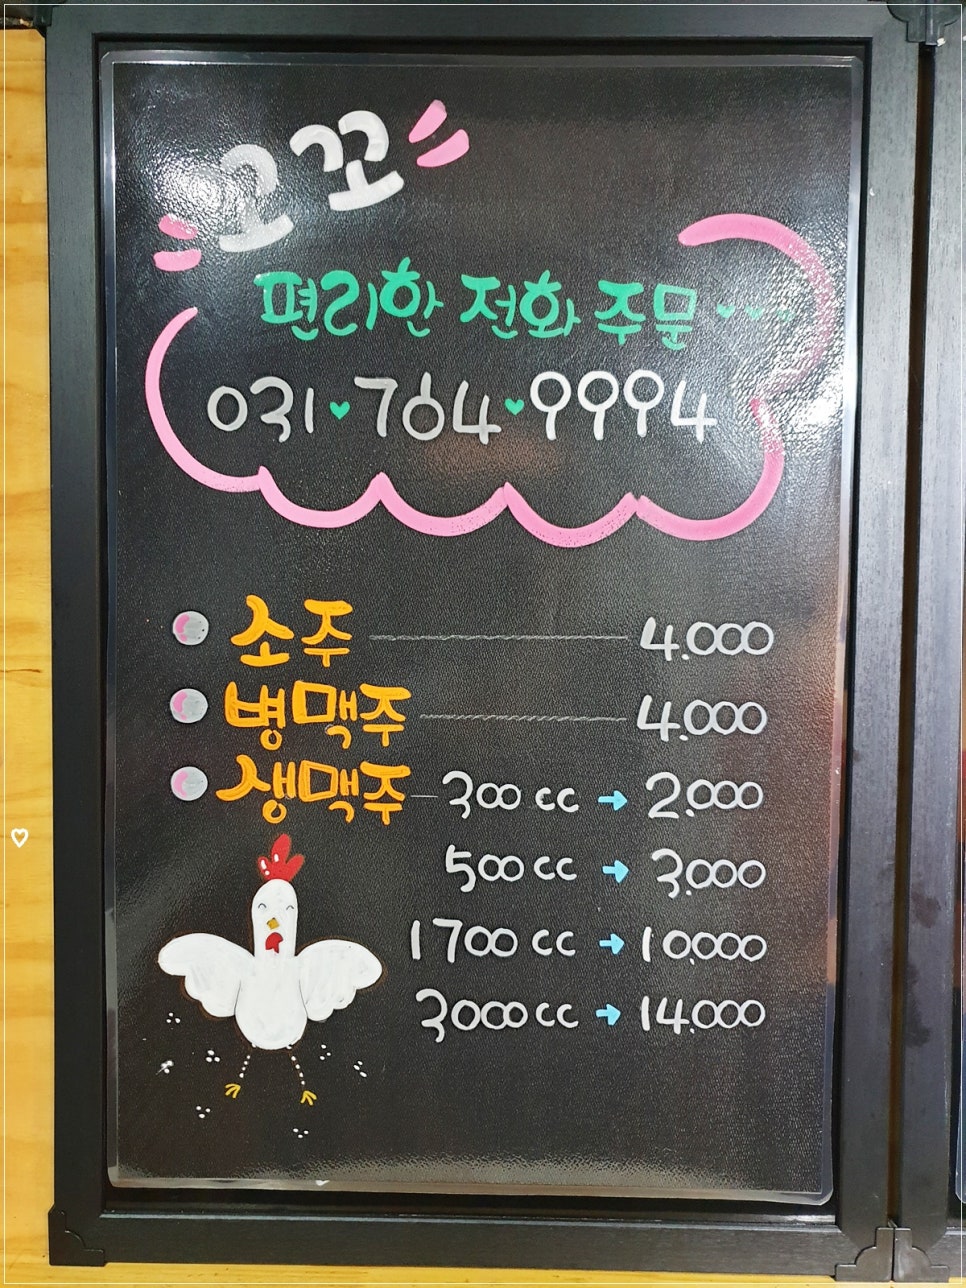 꼬꼬
편리한 전화 주문...
031·764·9994
소주 4.000
병맥주 4.000
생맥주 300cc → 2.000
500cc → 3.000
1700cc → 10.000
3000cc → 14.000